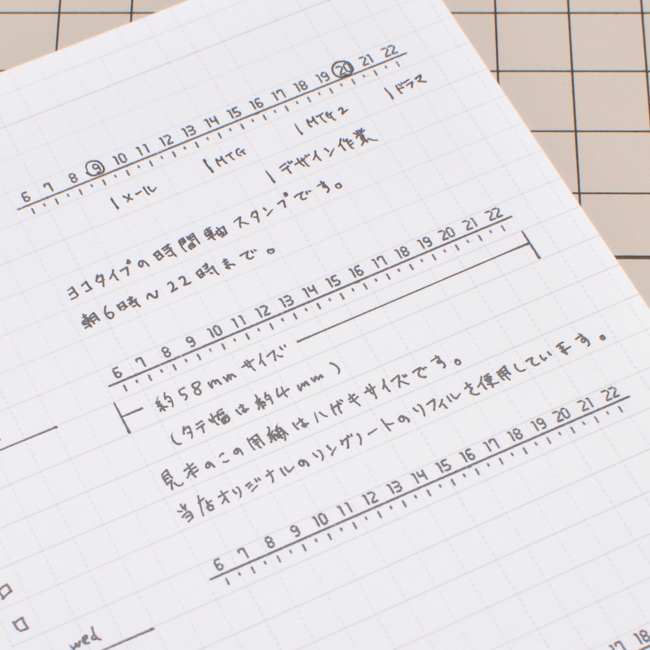 6 7 8 9 10 11 12 13 14 15 16 17 18 19 20 21 22
メール
MTG
MTG2
ドラマ
デザイン作業
ヨコタイプの時間軸スタンプです。
朝6時〜22時まで。
6 7 8 9 10 11 12 13 14 15 16 17 18 19 20 21 22
約58mmサイズ
(タテ幅は約4mm)
見本のこの用紙はハガキサイズです。
当店オリジナルのリングノートのリフィルを使用しています。
6 7 8 9 10 11 12 13 14 15 16 17 18 19 20 21 22
wed
17 18